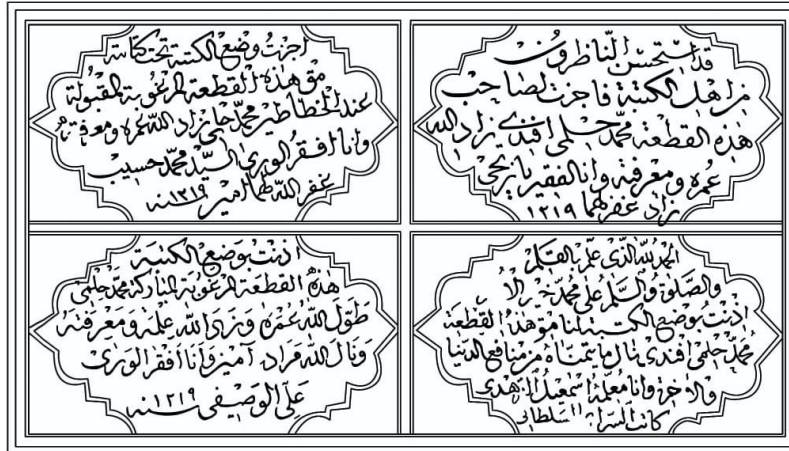 قد استحسن الناظرون
من اهل الكتبة فاجزت لصاحب
هذه القطعة محمد حلمى افندى زاد الله
عمره ومعرفته وانا الفقير
زاد غفر لهما ١٢١٩
اجزت وضع الكتبة تحت كتابة
هذه القطعة المرغوبة المقبولة
عند الخطاطين محمد حلمى زاد الله عمره ومعرفته
وانا افقر الورى السيد محمد حسيب
غفر الله لهما امين سنه ١٢١٩
الحمد لله الذى علم بالقلم
والصلوة والسلم على محمد خير
اذنت بوضع الكتبة هذا القطعة
محمد حلمى افندى نال ما يتمناه من منافع الدنيا
والاخرة وانا معلمه اسمعيل الزهدى
كاتب السراى السلطانى
اذنت بوضع الكتبة
هذه القطعة المرغوبة المباركة محمد حلمى
طول الله عمره وزاد الله علمه ومعرفته
ونال الله مراده امين وانا افقر الورى
على الوصفى سنه ١٢١٩